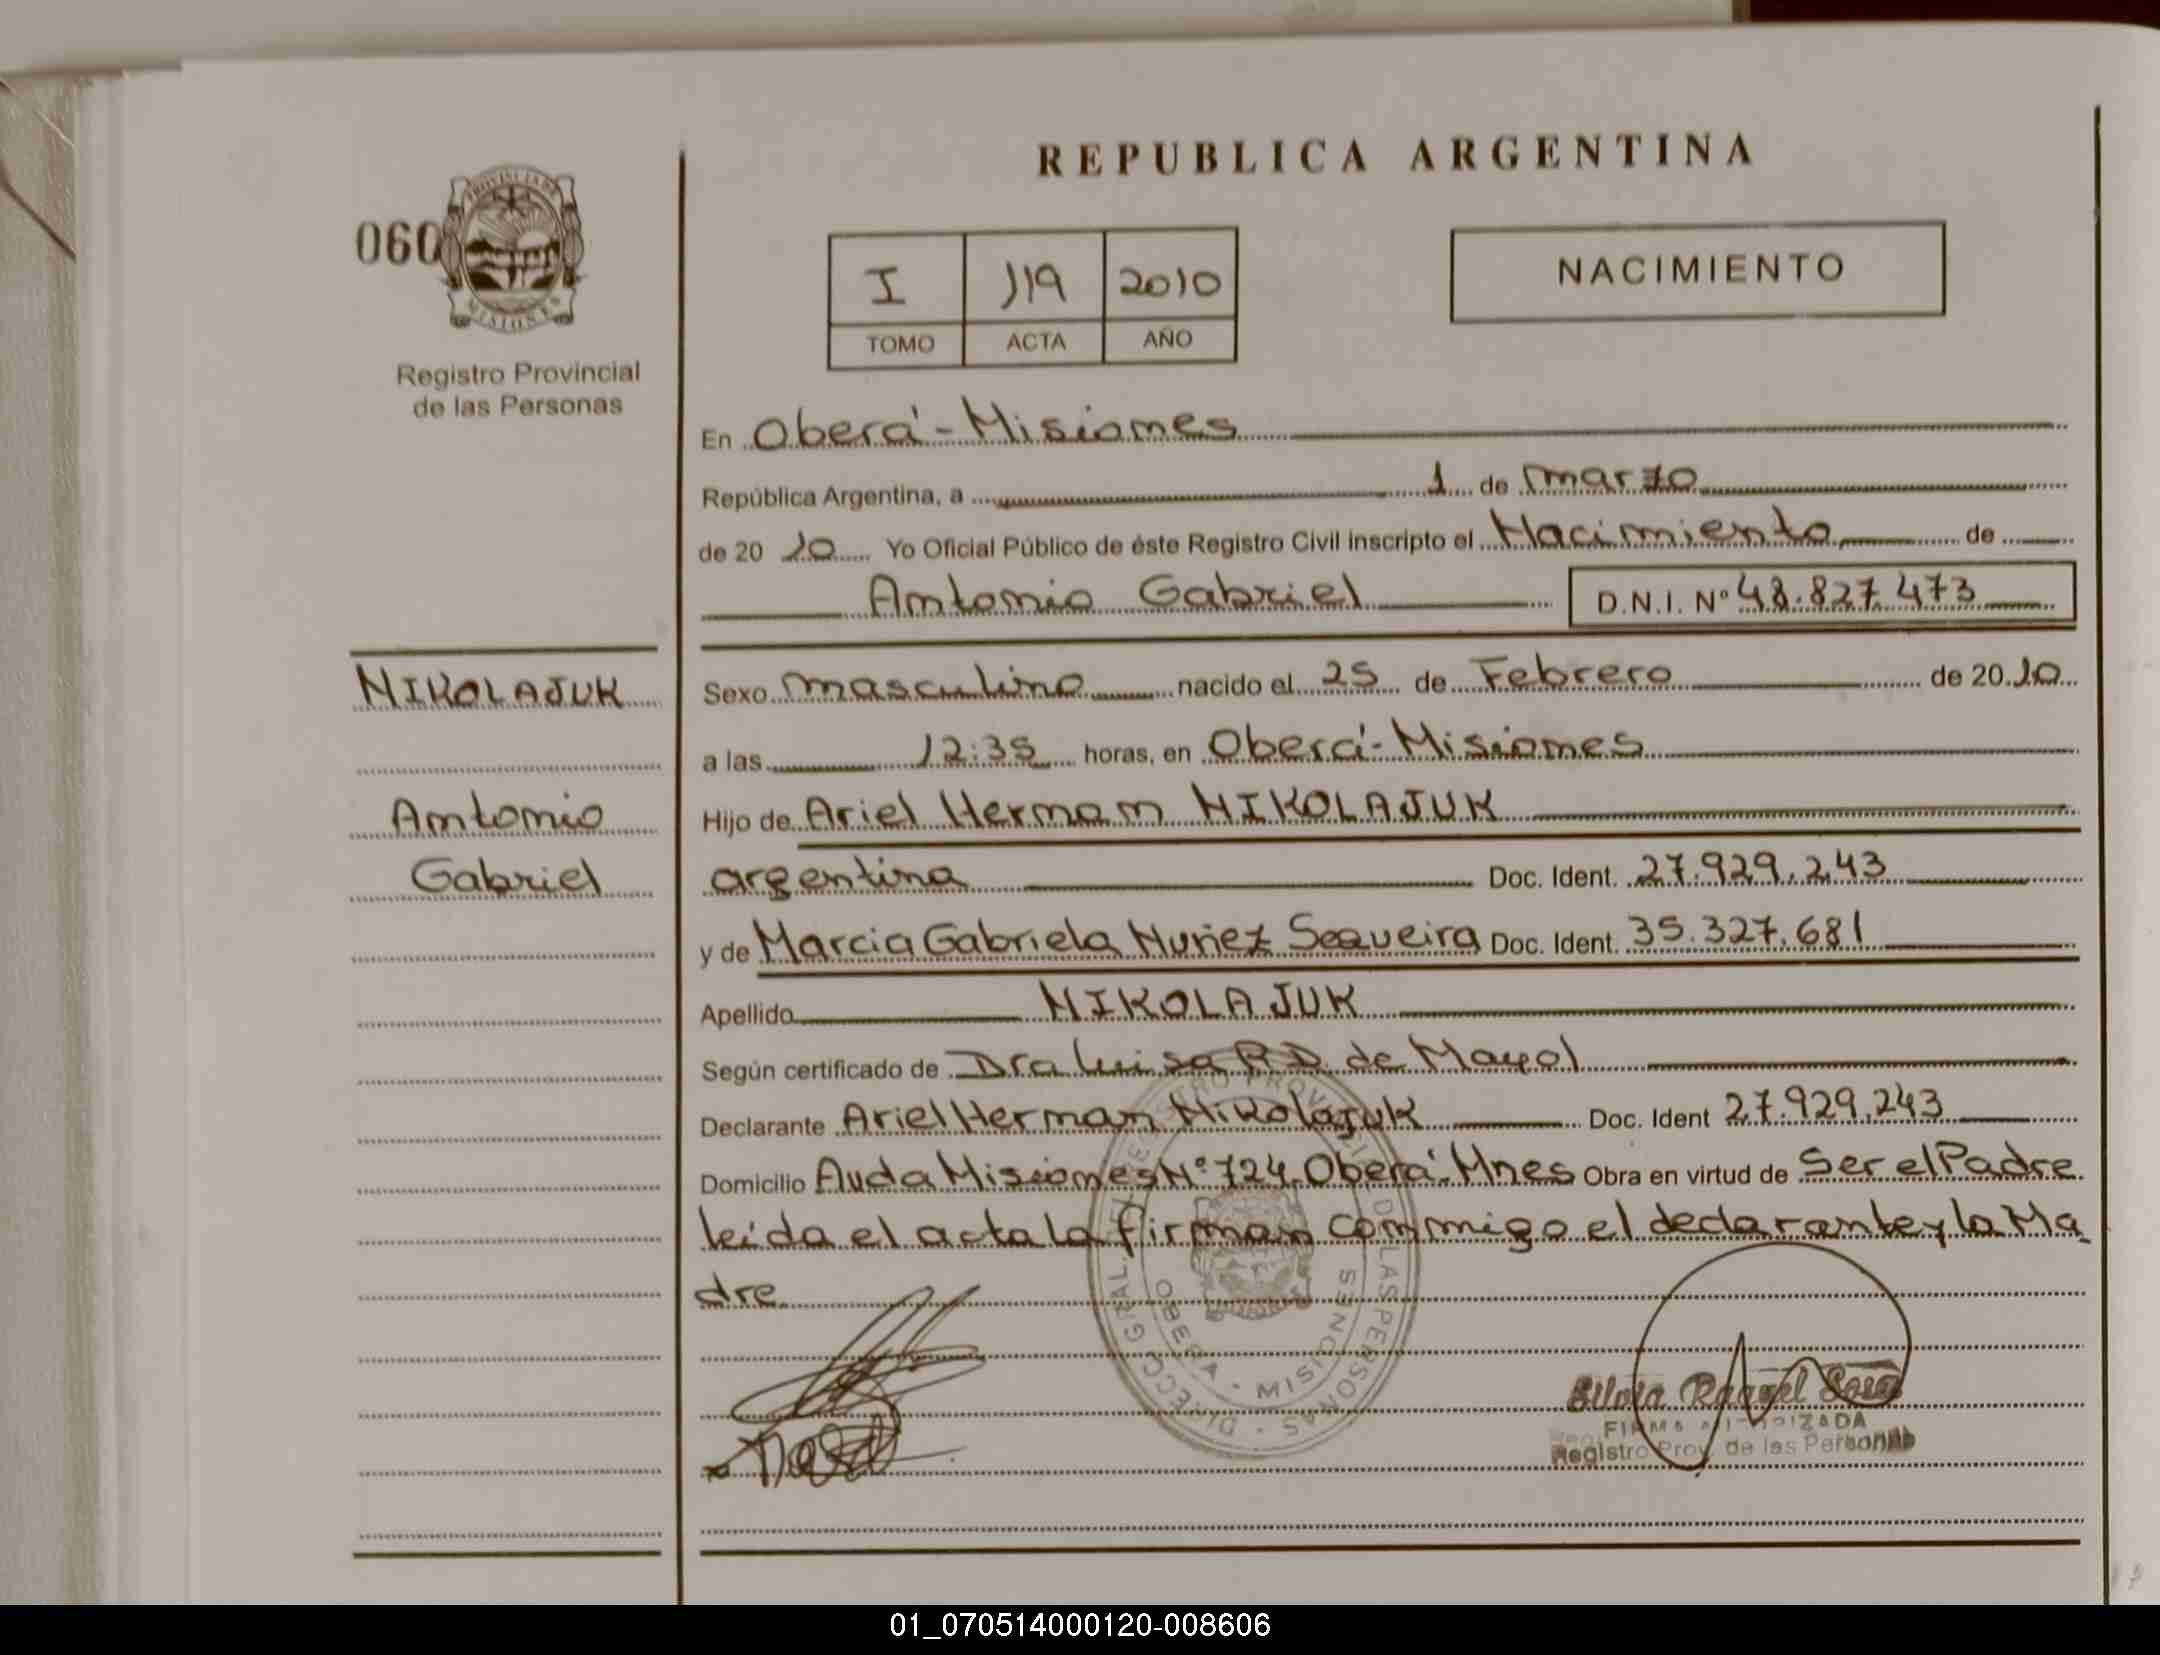 REPUBLICA ARGENTINA
060
PROVINCIA DE
MISIONES
Registro Provincial
de las Personas
I 119 2010
TOMO ACTA AÑO
NACIMIENTO
En Oberá - Misiones
República Argentina, a 1 de marzo
de 20 10 Yo Oficial Público de éste Registro Civil inscripto el Nacimiento de
Antonio Gabriel D.N.I. Nº 48.827.473
NIKOLAJUK
Antonio
Gabriel
Sexo masculino nacido el 25 de Febrero de 20 10
a las 12:35 horas, en Oberá - Misiones
Hijo de Ariel Hernan NIKOLAJUK
argentina Doc. Ident. 27.929.243
y de Marcia Gabriela Nuñez Sequeira Doc. Ident. 35.327.681
Apellido NIKOLAJUK
Según certificado de Dra Luisa R.D. de Mayol
Declarante Ariel Hernan Nikolajuk Doc. Ident 27.929.243
Domicilio Avda Misiones Nº 724 Oberá - Mnes Obra en virtud de Ser el Padre
leida el acta la firman conmigo el declarante y la Ma-
dre
DIRECC GRAL DEL REGISTRO PROVINCIAL DE LAS PERSONAS
OBERA - MISIONES
Silvia Raquel Sosa
FIRMA AUTORIZADA
Registro Prov. de las Personas
01_070514000120-008606